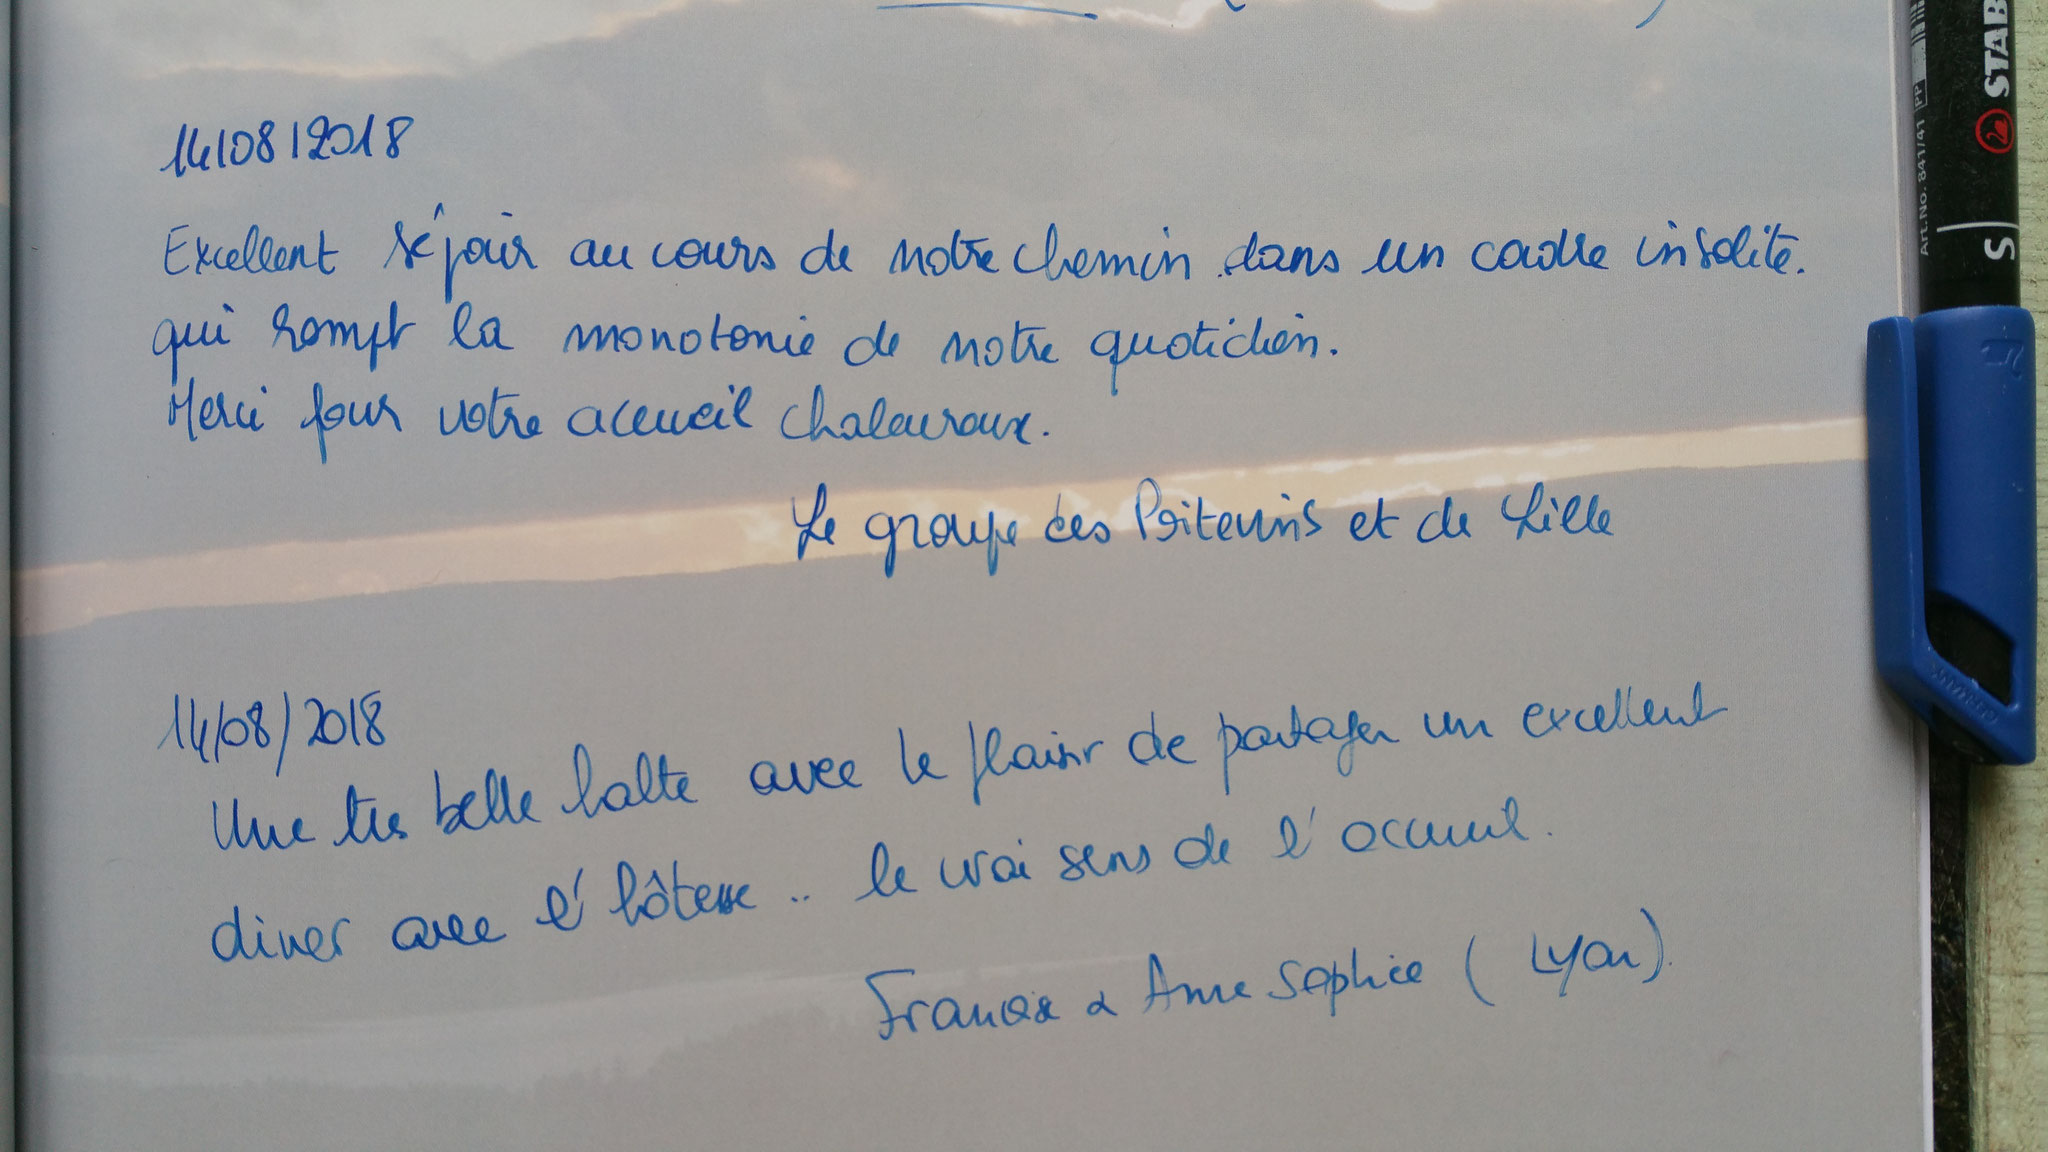 14/08/2018
Excellent séjour au cours de notre chemin dans un cadre insolite.
qui rompt la monotonie de notre quotidien.
Merci pour votre accueil chaleureux.
Le groupe des et de Lille
14/08/2018
Une très belle halte avec le plaisir de partager un excellent
diner avec l'hôtesse .. le vrai sens de l'accueil.
& Anne Sophie (Lyon).
STAB
Art. No. 841/41 PP
S